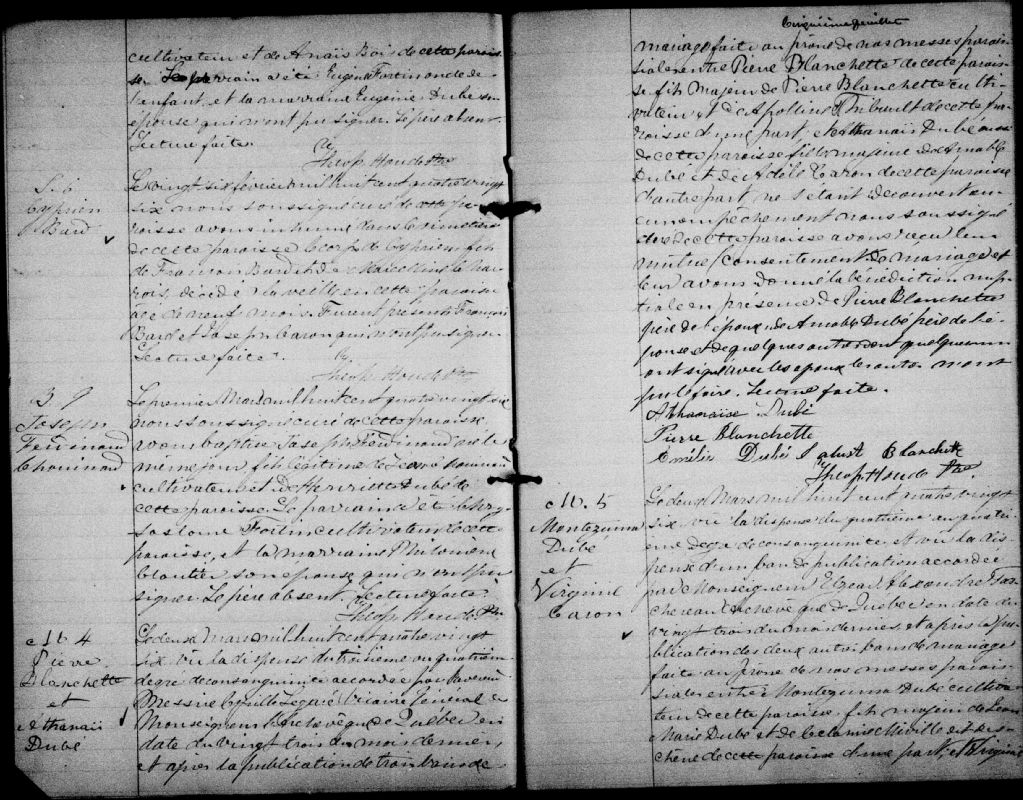 cultivateur et de Anaïs Bois de cette parois-
se. Le parrain a été Eugène Fortin oncle de
l'enfant, et la marraine Eugénie Dubé son
épouse qui n'ont pu signer. Le père absent.
Lecture faite.
Théop. Houde Ptre
S. 6
Cyprien
Bard
Le vingt six février mil huit cent quatre vingt
six nous soussigné curé de cette pa-
roisse avons inhumé dans le cimetière
de cette paroisse le corps de Cyprien fils
de François Bard et de Marcelline
décédé la veille en cette paroisse
âgé de neuf mois. Furent présents François
Bard et Joseph Caron qui n'ont pu signer.
Lecture faite.
Théop Houde Ptre
B. 9
Joseph
Ferdinand
Chouinard
Le premier Mars mil huit cent quatre vingt six
nous soussigné curé de cette paroisse
avons baptisé Joseph Ferdinand né le
même jour, fils légitime de Chouinard
cultivateur et de Henriette Dubé de
cette paroisse. Le parrain a été
Fortin cultivateur de cette
paroisse, et la marraine Philomène
Cloutier, son épouse qui n'ont pu
signer. Le père absent. Lecture faite.
Théop Houde Ptre
M. 4
Pierre
Blanchette
et
Athanaïs
Dubé
Le deux Mars mil huit cent quatre vingt
six, vu la dispense du troisième au quatrième
degré de consanguinité accordée par
Messire Cyrille Legaré Vicaire Général de
Monseigneur l'archevêque de Québec en
date du vingt trois du mois dernier,
et après la publication de trois bans de
Cinquième feuillet
mariage faite au prône de nos messes parois-
siales entre Pierre Blanchette de cette parois-
se fils majeur de Pierre Blanchette culti-
vateur et d'Apolline Thibault de cette pa-
roisse d'une part, et Athanaïs Dubé aussi
de cette paroisse fille majeure de Amable
Dubé et de Adèle Caron de cette paroisse
d'autre part, ne s'étant découvert au-
cun empêchement nous soussigné
curé de cette paroisse avons reçu leur
mutuel consentement de mariage et
leur avons donné la bénédiction nup-
tiale en présence de Pierre Blanchette
père de l'époux, de Amable Dubé père de l'é-
pouse et de quelques autres dont quelques uns
ont signé avec les époux les autres n'ont
pu le faire. Lecture faite.
Athanaise Dubé
Pierre Blanchette
Emélie Dubé Saluste Blanchette
Théop Houde Ptre.
M. 5
Montezuma
Dubé
et
Virginie
Caron
Le deux Mars mil huit cent quatre vingt
six vu la dispense du quatrième au quatri-
ème degré de consanguinité et vu la dis-
pense d'un ban de publication accordée
par Monseigneur Elzear Alexandre Tas-
chereau Archevêque de Québec en date du
vingt trois du mois dernier, et après la pu-
blication des deux autres bans de mariage
faite au prône de nos messes parois-
siales entre Montezuma Dubé cultiva-
teur de cette paroisse, fils majeur de Jean
Marie Dubé et de Miville
Deschène de cette paroisse d'une part, et Virginie